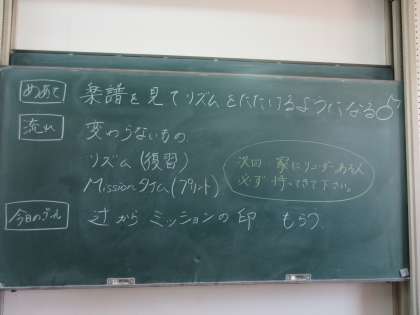 めあて 楽譜を見てリズムをたたけるようになる♪
流れ 変わらないもの
リズム(復習)
Missionタイム(プリント)
次回 家にリコーダーある人
必ず持ってきて下さい。
今日のゴール 辻からミッションの印 もらう。